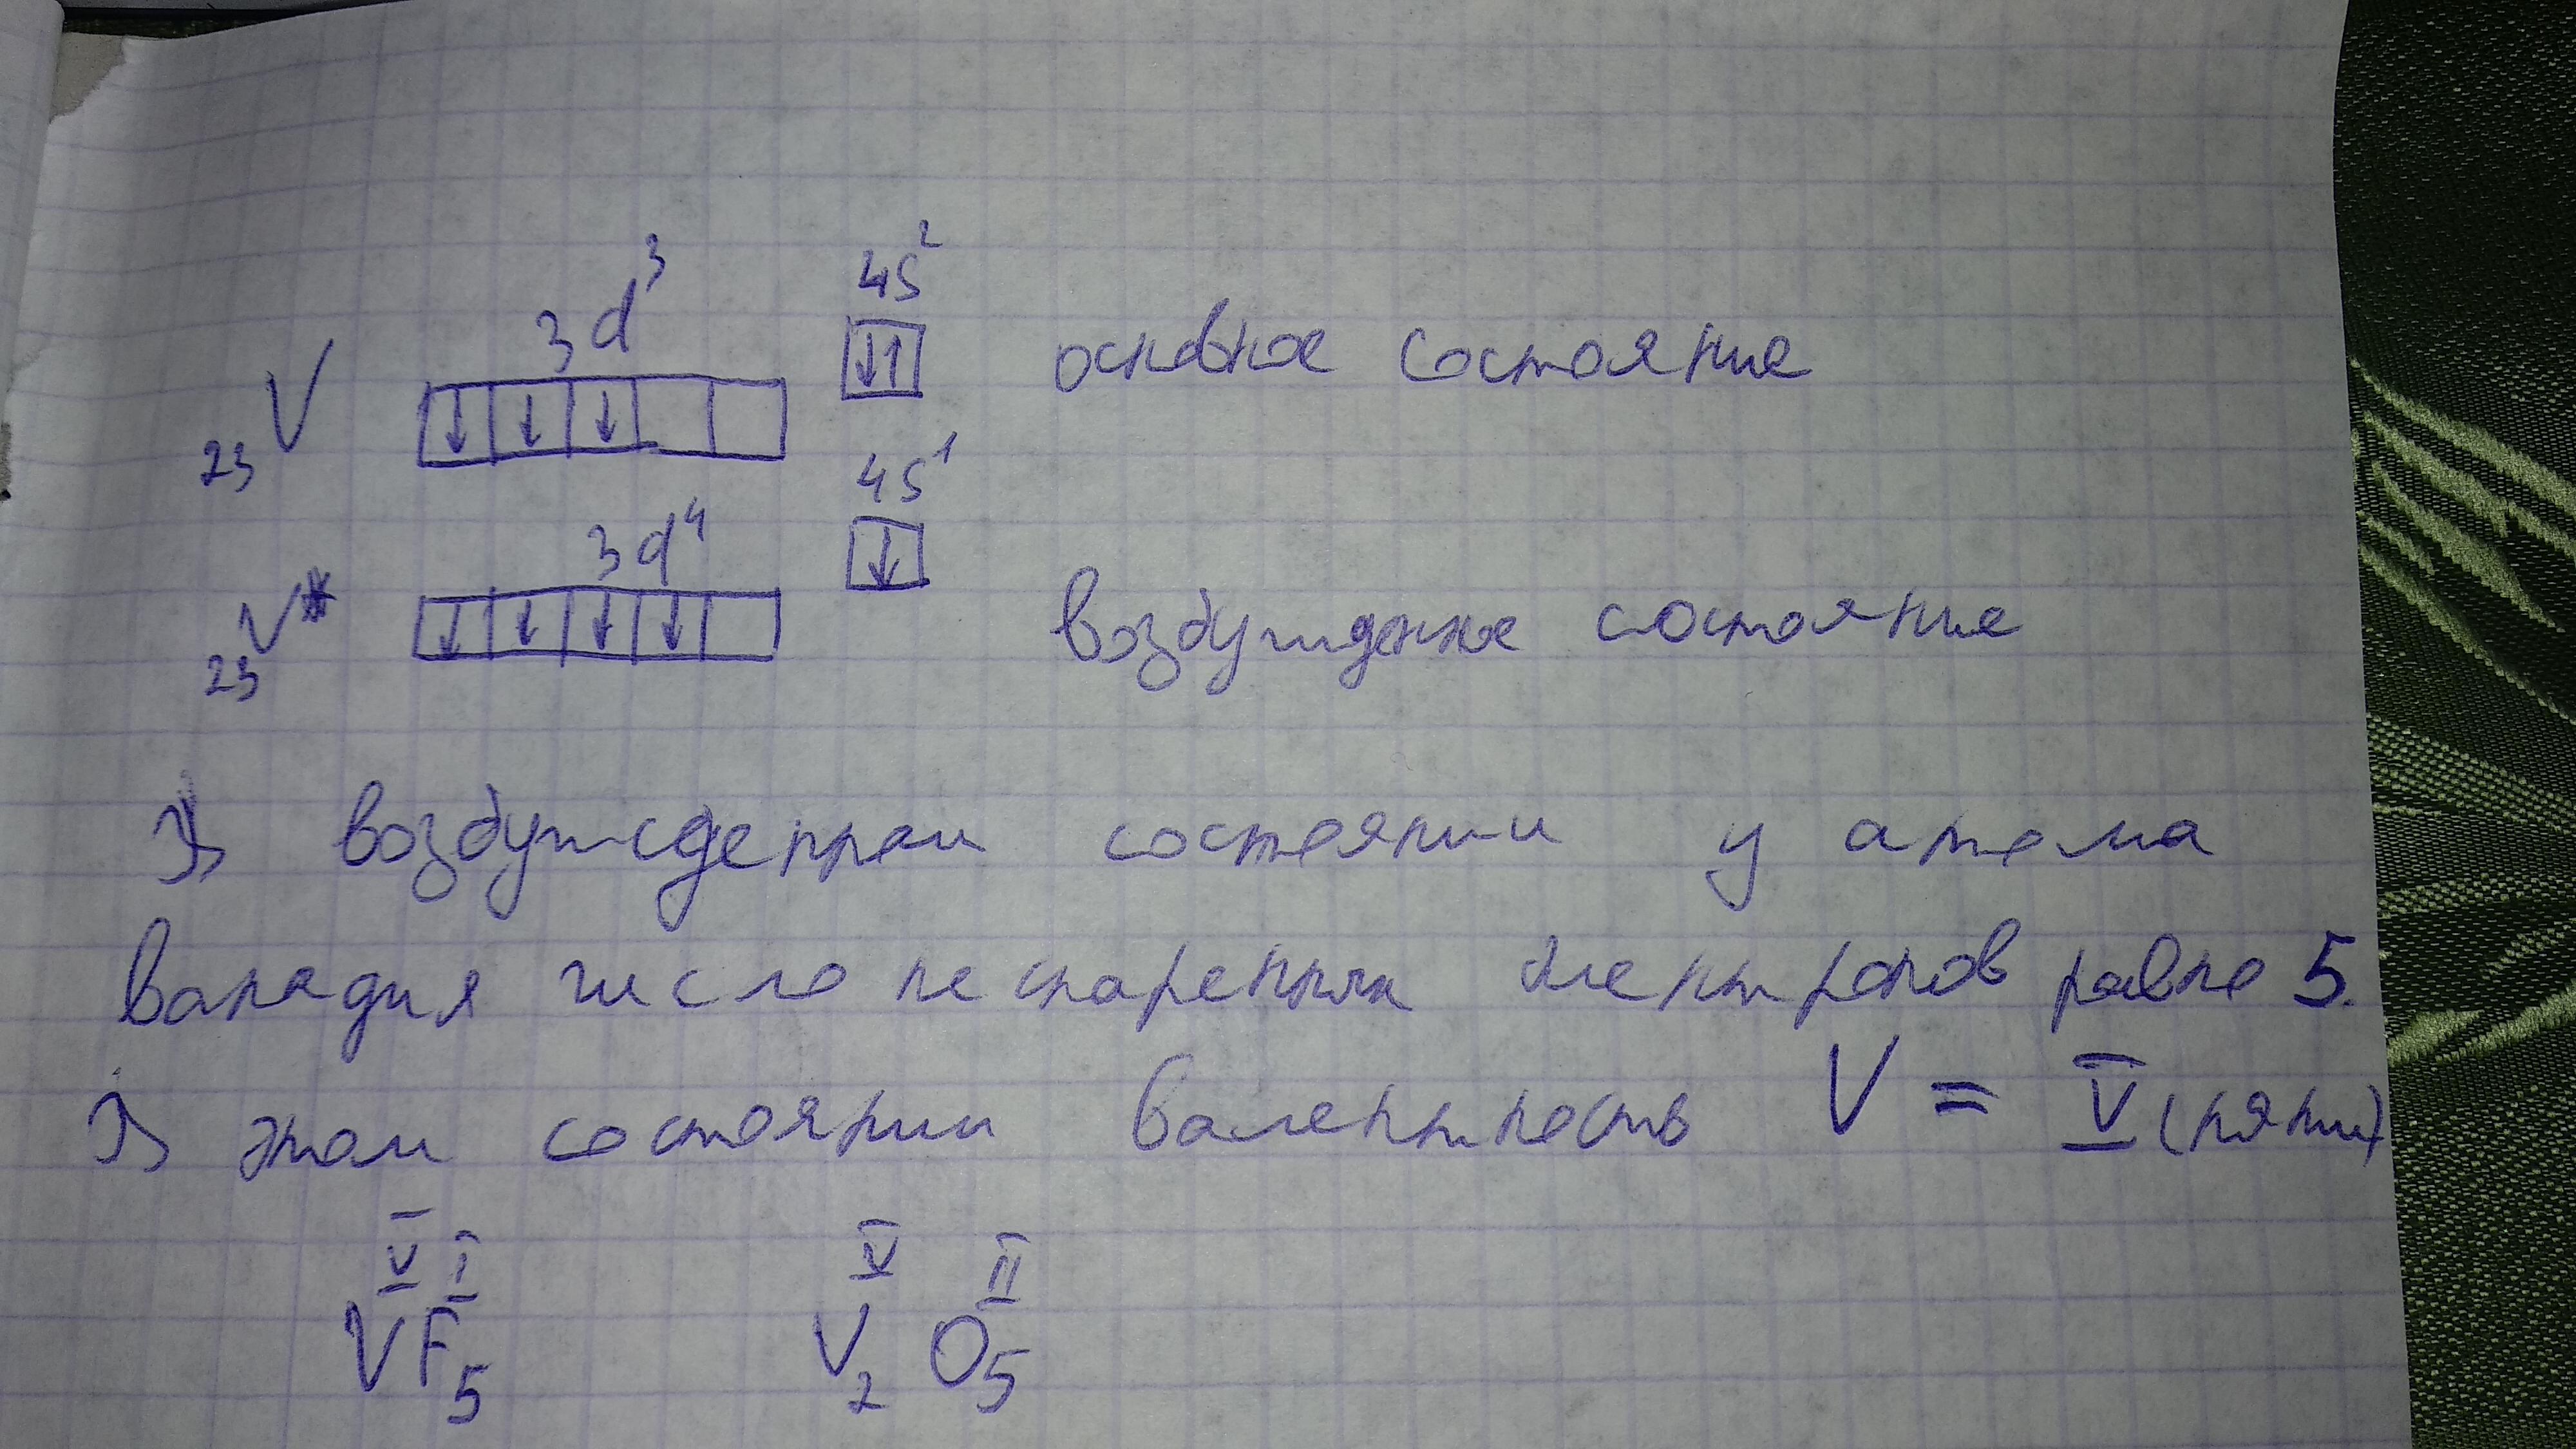 3d³ 4s²
₂₃V ↓ ↓ ↓ ↓1 основное состояние
3d⁴ 4s¹
₂₃V* ↓ ↓ ↓ ↓ ↓ возбужденное состояние
В возбужденном состоянии у атома
ванадия число неспаренных электронов равно 5.
В этом состоянии валентность V = V (пяти)
V I V II
VF₅ V₂O₅